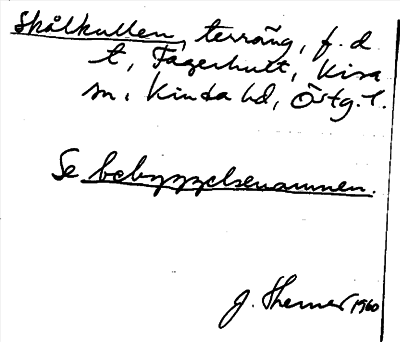 Skålkullen, terräng, f.d
t, Fagerhult, Kisa
sn. Kinda hd, Östg. l.
Se bebyggelsenamnen.
J. Themer 1960